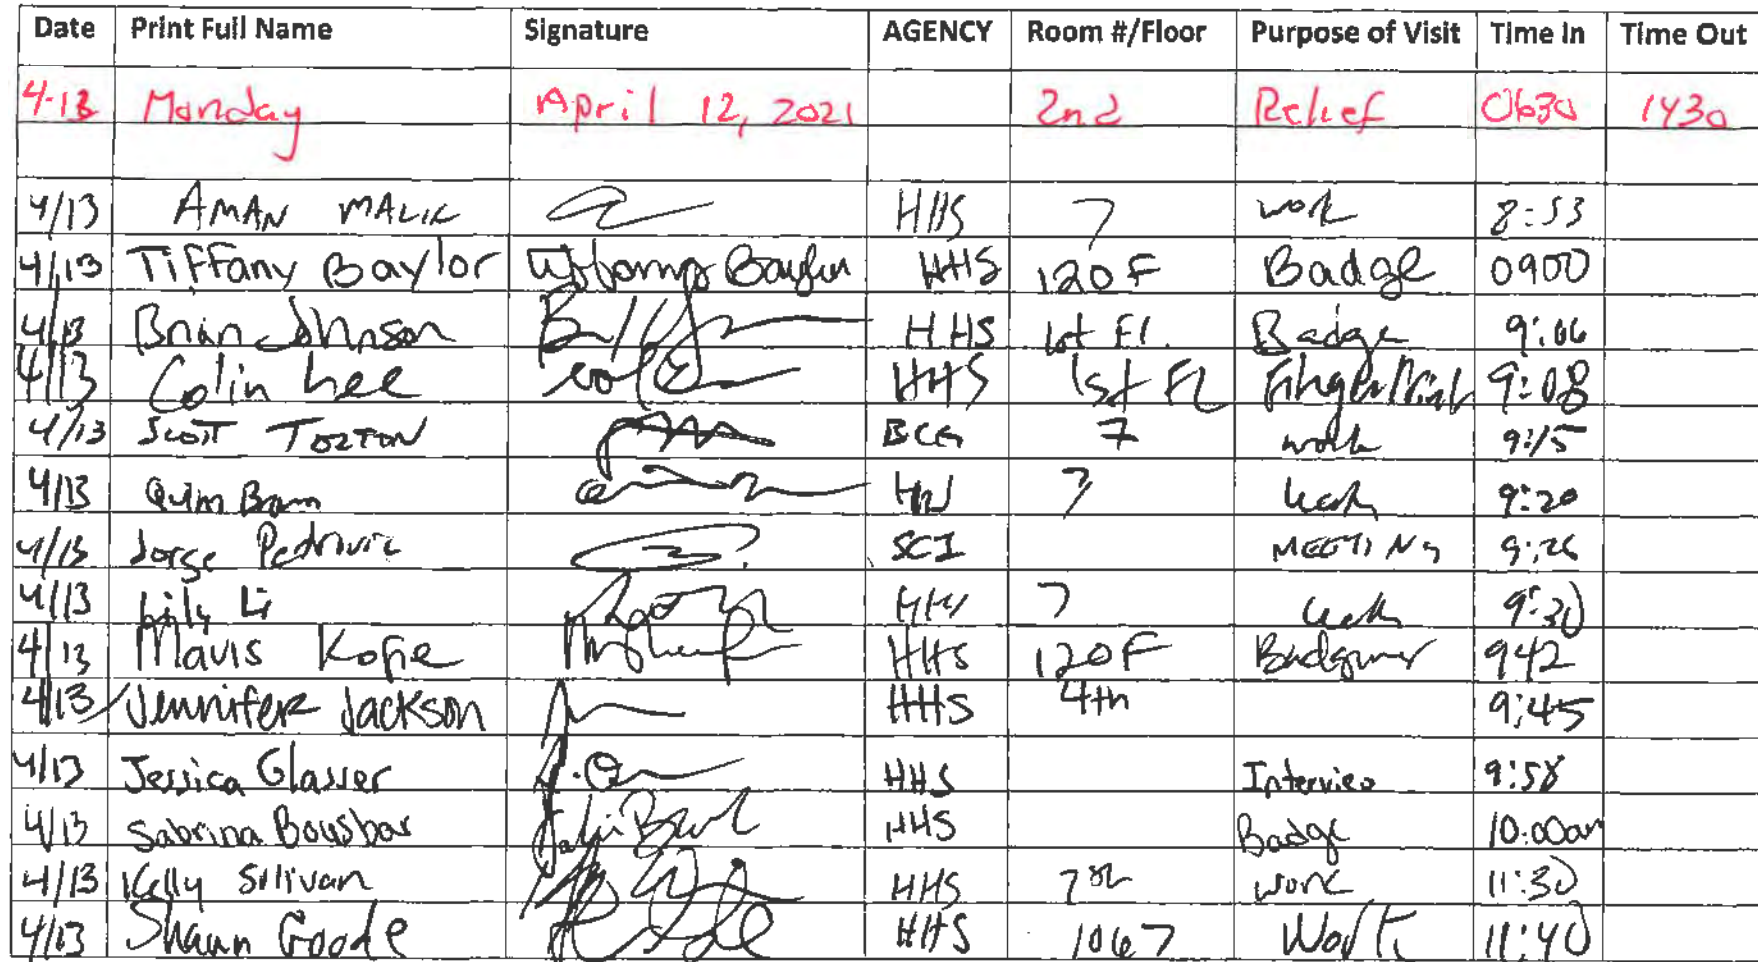 Date Print Full Name Signature AGENCY Room #/Floor Purpose of Visit Time In Time Out
4-13 Monday April 12, 2021 2nd Relief 0630 1430
4/13 AMAN MALIK HHS 7 work 8:53
4/13 Tiffany Baylor Tiffany Baylor HHS 120F Badge 0900
4/13 Brian Johnson HHS 1st Fl. Badge 9:06
4/13 Colin Lee HHS 1st FL Fingerprint 9:08
4/13 SCOTT BCG 7 work 9:15
4/13 7 work 9:20
4/13 Jorge SCI MEETING 9:26
4/13 Lily Li HHS 7 work 9:30
4/13 Mavis Kofie HHS 120F 942
4/13 Jennifer Jackson HHS 4th 9:45
4/13 Jessica Glasser HHS Interview 9:58
4/13 Sabrina Bousbar HHS Badge 10:00am
4/13 Kelly Sullivan HHS 7th work 11:30
4/13 Shawn Goode HHS 1067 Work 11:40